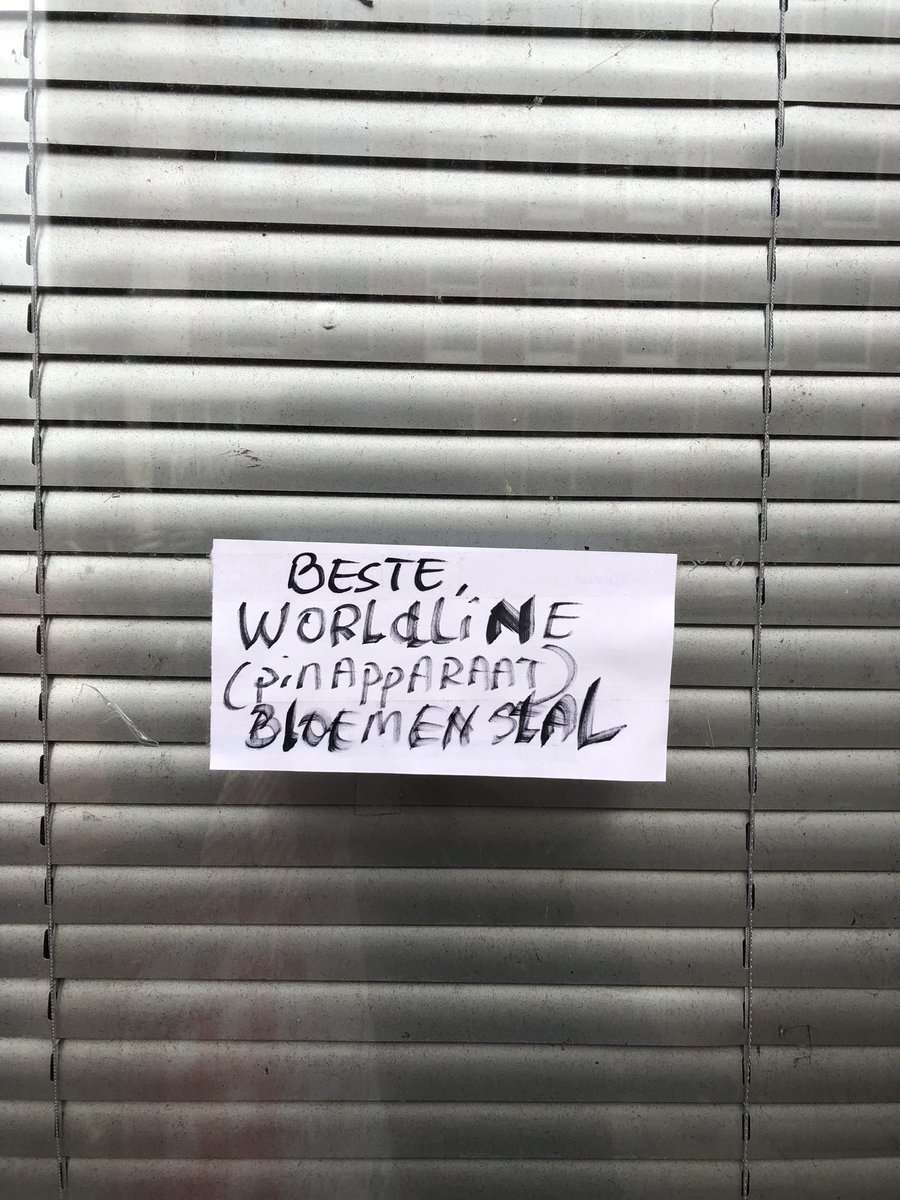 BESTE,
WORLdLiNE
(pinAppARAAT)
BLOEMEN STAL